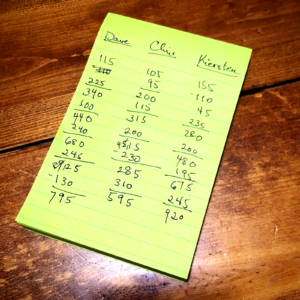 Dave Chris Kiersten
115 105 155
95 110
225 200 45
340 115 235
100 315 280
440 200 200
240 480
680 230 195
245 285 675
310 245
130 595 920
795